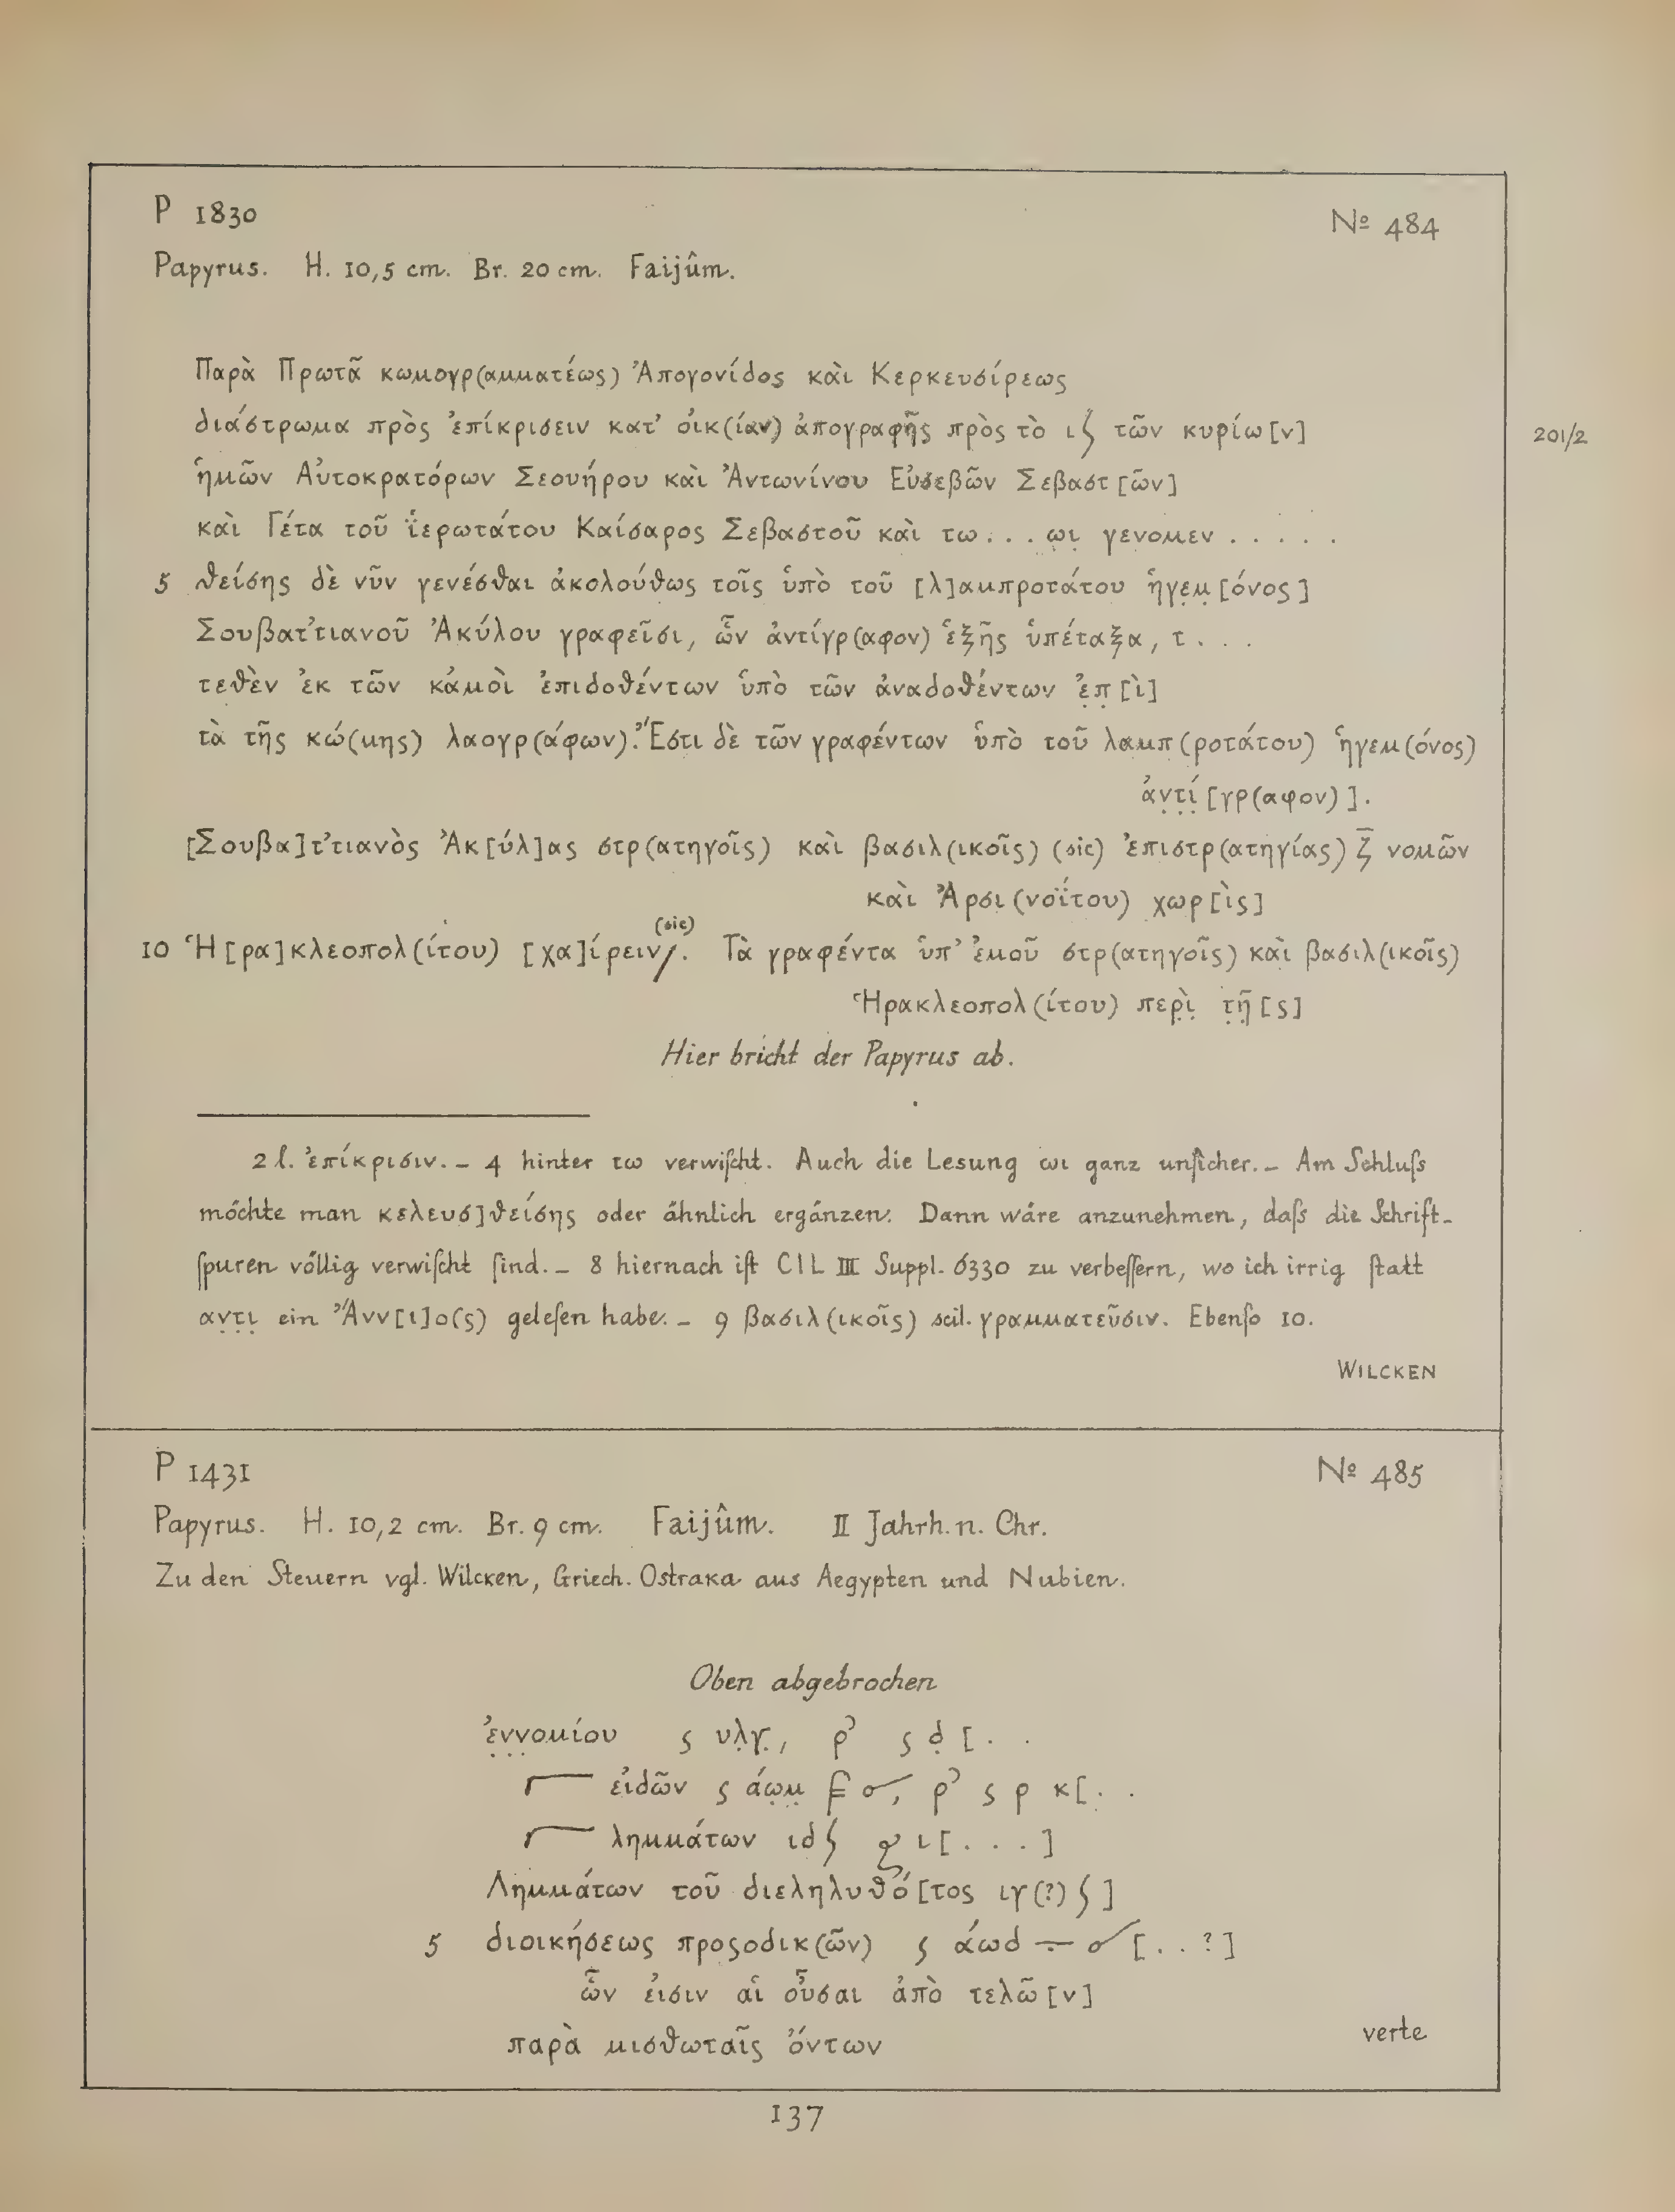 P 1830
№ 484
Papyrus. H. 10,5 cm. Br. 20 cm. Faijûm.
Παρὰ Πρωτᾶ κωμογρ(αμματέως) Ἀπογονίδος καὶ Κερκευσίρεως
διάστρωμα πρὸς ἐπίκρισειν κατ’ οἰκ(ίαν) ἀπογραφῆς πρὸς τὸ ιϛ τῶν κυρίω[ν]
201/2
ἡμῶν Αὐτοκρατόρων Σεουήρου καὶ Ἀντωνίνου Εὐσεβῶν Σεβαστ[ῶν]
καὶ Γέτα τοῦ ϊερωτάτου Καίσαρος Σεβαστοῦ καὶ τω . . . ω̣ι̣ γενομεν . . . . .
5 θείσης δὲ νῦν γενέσθαι ἀκολούθως τοῖς ὑπὸ τοῦ [λ]αμπροτάτου ἡγε̣μ̣[όνος]
Σουβατ’τιανοῦ Ἀκύλου γραφεῖσι, ὧν ἀντίγρ(αφον) ἑξῆς ὑπέταξα, τ . . .
τεθὲν ἐκ τῶν κἀμοὶ ἐπιδοθέντων ὑπὸ τῶν ἀναδοθέντων ἐ̣π̣[ὶ]
τὰ τῆς κώ(μης) λαογρ(άφων). Ἔστι δὲ τῶν γραφέντων ὑπὸ τοῦ λαμπ(ροτάτου) ἡγεμ(όνος)
ἀν̣τ̣ί̣[γρ(αφον)].
[Σουβα]τ’τιανὸς Ἀκ[ύλ]ας στρ(ατηγοῖς) καὶ βασιλ(ικοῖς) (sic) ἐπιστρ(ατηγίας) ζ̄ νομῶν
καὶ Ἀρσι(νοΐτου) χωρ[ὶς]
10 Ἡ[ρα]κλεοπολ(ίτου) [χα]ίρειν/. (sic) Τὰ γραφέντα ὑπ’ ἐμοῦ στρ(ατηγοῖς) καὶ βασιλ(ικοῖς)
Ἡρακλεοπολ(ίτου) περ̣ὶ̣ τ̣ῆ̣[ς]
Hier bricht der Papyrus ab.
2 l. ἐπίκρισιν. – 4 hinter τω verwiſcht. Auch die Lesung ωι ganz unſicher. – Am Schluſs
möchte man κελευσ]θείσης oder ähnlich ergänzen. Dann wäre anzunehmen, daſs die Schrift-
ſpuren völlig verwiſcht ſind. – 8 hiernach iſt CIL III Suppl. 6330 zu verbeſſern, wo ich irrig ſtatt
αν̣τ̣ι̣ ein Ἄνν[ι]ο(ς) geleſen habe. – 9 βασιλ(ικοῖς) scil. γραμματεῦσιν. Ebenſo 10.
WILCKEN
P 1431
№ 485
Papyrus. H. 10,2 cm. Br. 9 cm. Faijûm. II Jahrh. n. Chr.
Zu den Steuern vgl. Wilcken, Griech. Ostraka aus Aegypten und Nubien.
Oben abgebrochen
ἐ̣ν̣ν̣ομίου ς υλ̣γ̣, ρ’ ς δ̣ [. .
εἰδῶν ς ά̣ω̣μ̣ ρ’ ς ρ κ[. .
λημμάτων ιδ ϛ ι[. . .]
Λημμάτων τοῦ διεληλυθό[τος ιγ(?) ϛ]
5 διοικήσεως προςοδικ(ῶν) ς άωδ [. . ?]
ὧν εἰσιν αἱ οὖσαι ἀπὸ τελῶ[ν]
παρὰ μισθωταῖς ὄντων
verte
137